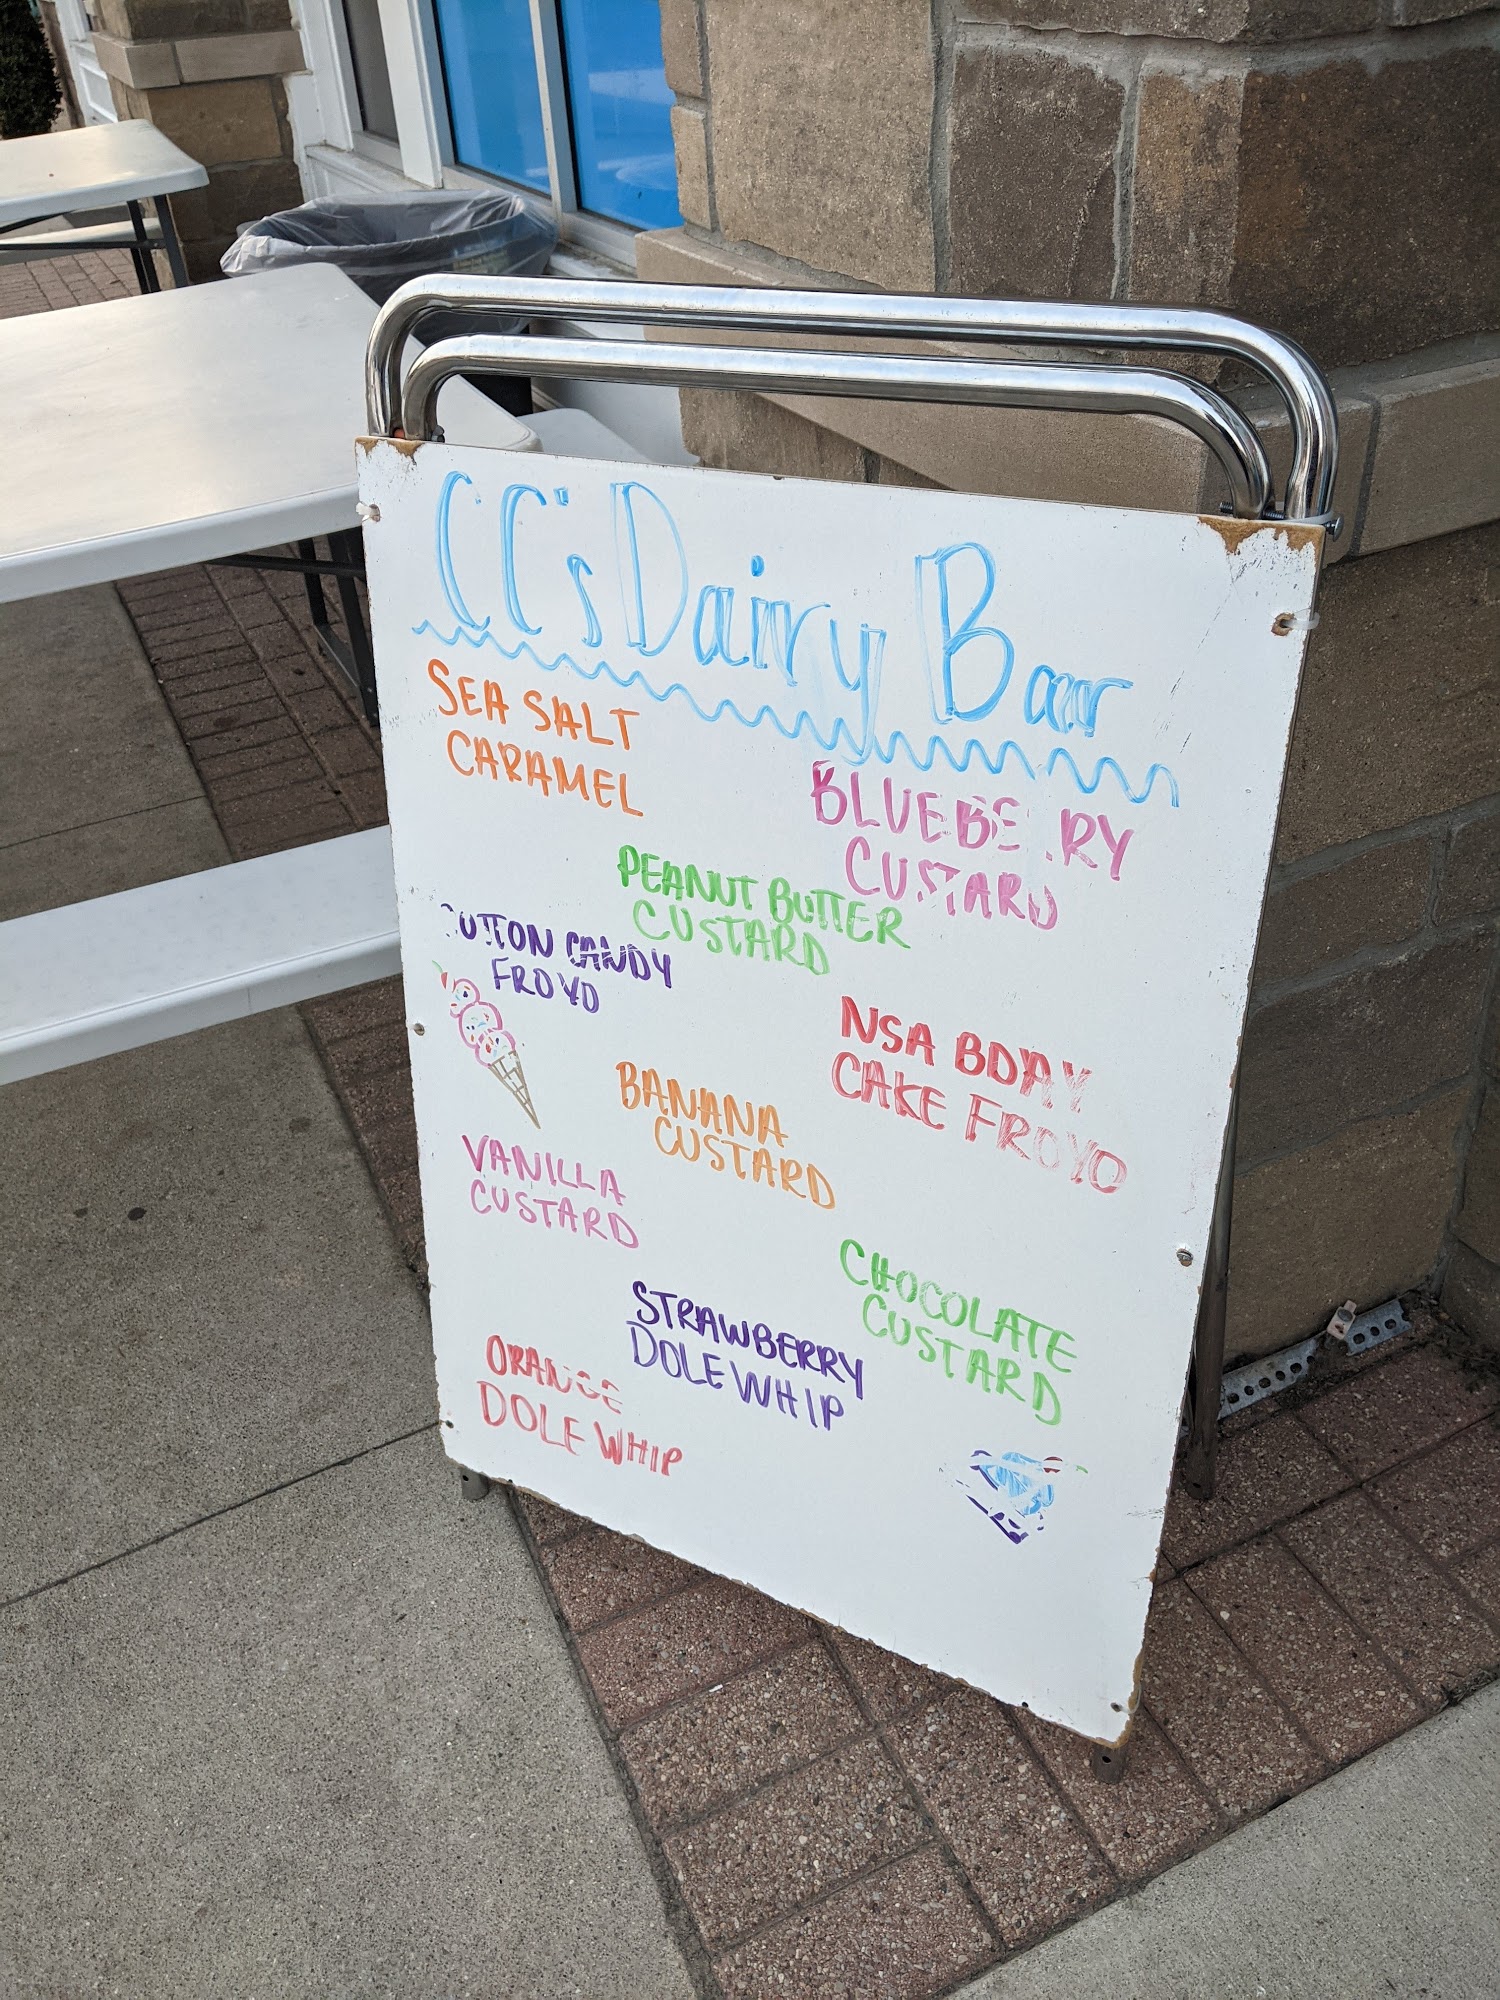 CC's Dairy Bar
SEA SALT
CARAMEL
BLUEBERRY
CUSTARD
PEANUT BUTTER
CUSTARD
COTTON CANDY
FROYO
NSA BDAY
CAKE FROYO
BANANA
CUSTARD
VANILLA
CUSTARD
CHOCOLATE
CUSTARD
STRAWBERRY
DOLE WHIP
ORANGE
DOLE WHIP